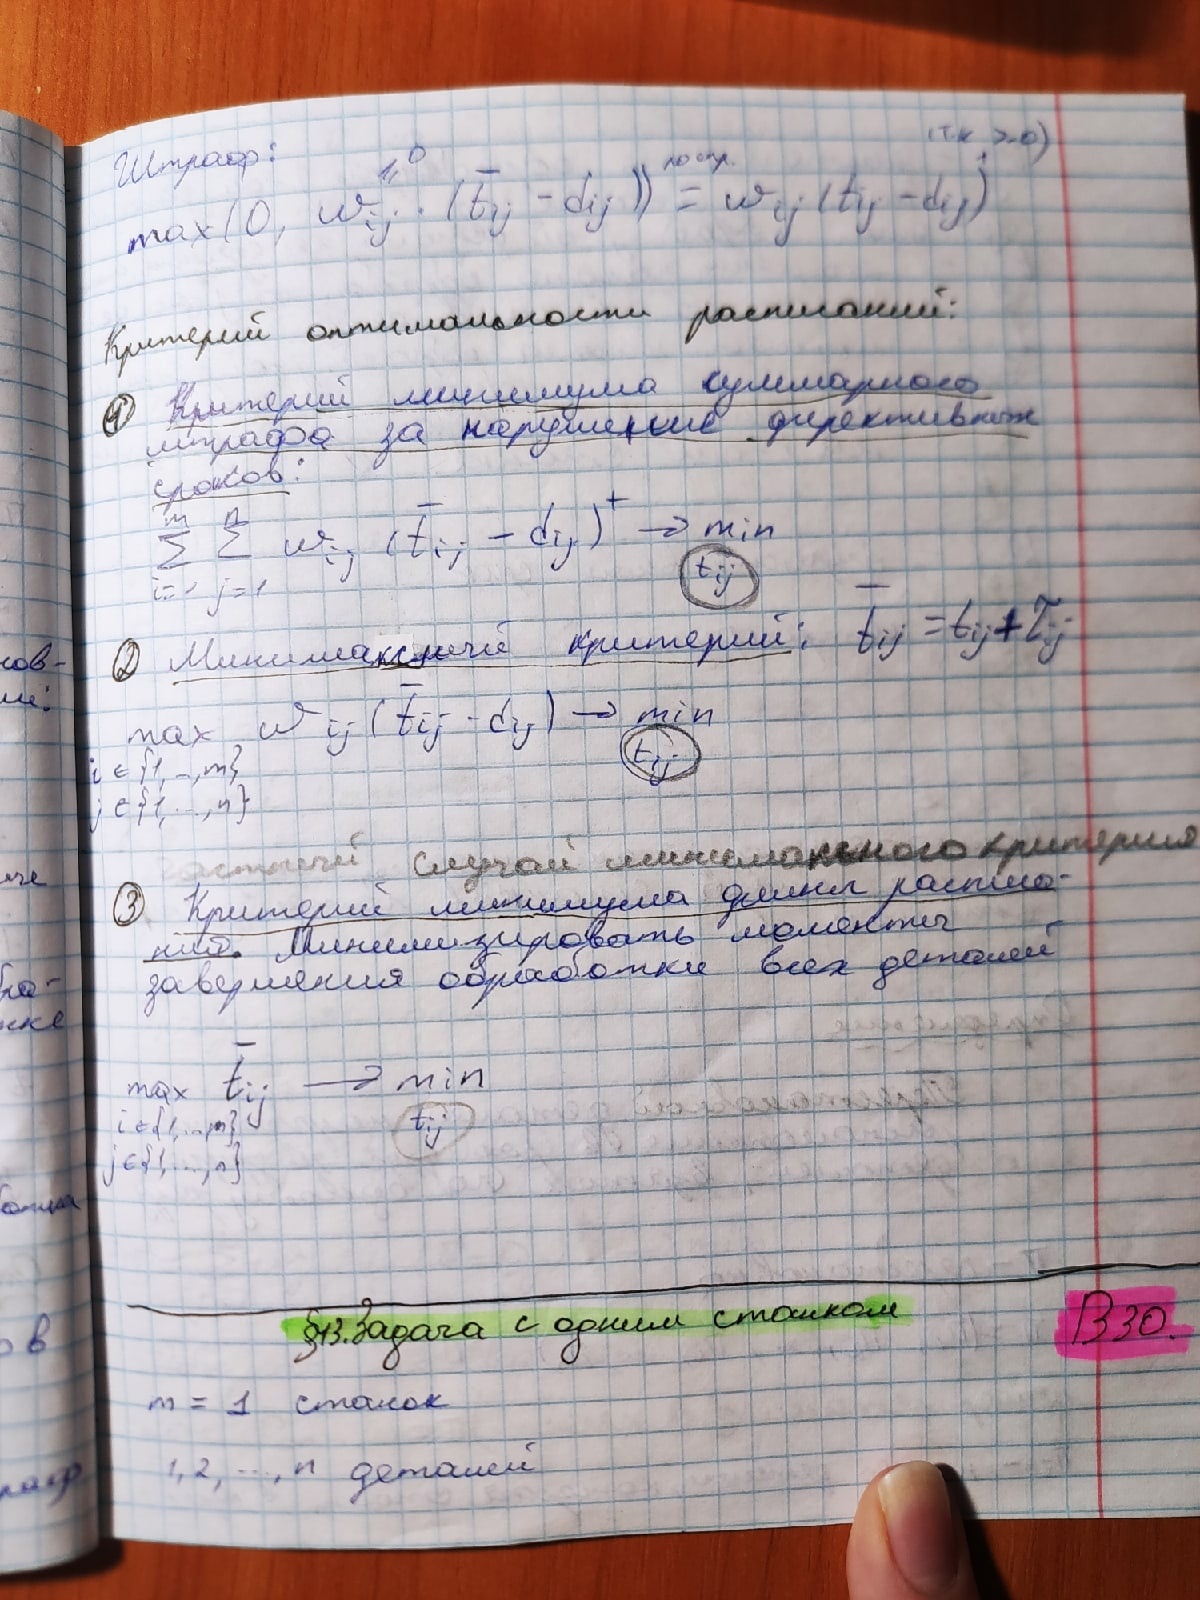 Штраф:
max(0, w_ij · (t̄_ij - d_ij)) = w_ij (t_ij - d_ij)
Критерий оптимальности расписаний:
① Критерий минимума суммарного
штрафа за нарушение директивных
сроков:
∑_{i=1}^{m} ∑_{j=1}^{n} w_ij (t̄_ij - d_ij)^+ → min
t_ij
② Минимаксный критерий: t̄_ij = t_ij + τ_ij
max w_ij (t̄_ij - d_ij) → min
i ∈ {1, ..., m} t_ij
j ∈ {1, ..., n}
Частный случай минимаксного критерия
③ Критерий минимума длины расписа-
ний. Минимизировать моменты
завершения обработки всех деталей
max t̄_ij → min
i ∈ {1, ..., m} t_ij
j ∈ {1, ..., n}
§13. Задача с одним станком В30.
m = 1 станок
1, 2, ..., n деталей